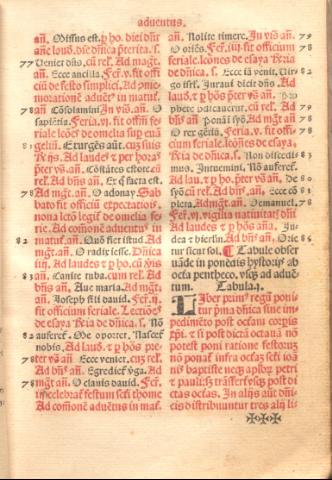 aduentus.
añ. Missus est. p̱ ho. dieī dñr
añe lauđ. die dñica p̱terita. s.
77 Ueniet dñs, cū rel̄. Ad mag̃t.
añ. Ecce ancilla. Fer̄. v. fit offi
ciū de festo simplici. Ad me
morationē aduēt⁹ in matuť.
añ. Cōsolamini In vs̃ añ. O
sapiētia. Feria. vj. fit offm̄ fe
rialˀ lc̄ões de omelia sup euā
gelˀi. Exurgēs aūt. cuɜ suis
Rɀijs. Ad laudes ɀ per horaɜ
p̱ter vs̃ añ. Cōstātes estote cū
rel̄. Ad bñs̃ añ. Ex q̄ facta est.
78 Ad mag̃t. añ. O adonay Sab
bato fit officiū expectatiōis
nona lectō legiť de omelia fe
rie. Ad cōmonē aduent⁹ in
82 matuť. añ. Quō fiet istud Ad
mag̃t añ. O radix iesse. Dñica
iiij. Ad laudes ɀ p̱ ho. cū ṽris
83 añ. Canite tuba. cum rel̄. Ad
bñs̃ añ. Aue maria. Ad mag̃t.
añ. Joseph fili dauid. Fer̄. ij.
fit officium feriale. Lectiōes
de esaya Rɀia de dñica. s. Nō
82 auferet̃. Me oportet. Nascet̃
nobis. Ad lauđ. ɀ p̱ hōs p̱
78 ter vs̃ añ. Ecce veniet. cuɜ rel̄.
Ad bñs̃ añ. Egrediet̃ v̄ga. Ad
78 mag̃t añ. O clauis dauid. Fer̄.
iij celebrať festum scti thome
Ad cōmonē aduētus in mať.
añ. Nolite timere. In vs̃ añ. 79
O oriēs. Fer̄. iiij. fit officium
feriale. lc̄ões de esaya Rɀia
de dñica. s. Ecce iā veniet. Vir
go isrl̄. Juraui dicit dñs. Ad
lauđ. ɀ p̱ hōs p̱ter vs̃ añ.
phete p̱dicauerūt. cū rel̄. Ad 79
bñs̃ añ. Ponā i syō. Ad mg̃t añ 80
O rex gētiū. Feria. v. fit offi 78
cium feriale lc̄ões de esaya.
Rɀia de dñica. s. Non discedi
mus. Intuemini. Nō auferet̃.
Ad lau. ɀ p̱ ho. p̱ter vs̃ añ. De 80
syō cū rel̄. Ad bñs̃ añ. Ecce cō 80
pleta. Ad mg̃t añ. O emanuel. 78
Fer̄. vj. vigilia natiuitať dñi
Ad laudes ɀ p̱ hōs añ. Ju
dea ɀ hierlm̄. Ad bñs̃ añ. Orie 86
tur sicut sol. ¶ Tabule obser
uāde in ponēdis hystorijs ab
octa pentheco. vsqɜ ad aduē
tum. Tabula. j.
LIber prim⁹ regū poni
tur p̱ma dñica sine im
pedimēto post octam corp̱is
xp̄i. ɀ si post dictā octauā nō
potest poni ratione festoruɜ
nō ponaľ infra octaɜ scti ioā
nis baptiste necqɜ aplōɜ petri
ɀ pauli: sɜ trāsfereť vsqɜ post di
ctas octaś. In alijs aūt dñi
cis distribuuntur tres alij li-